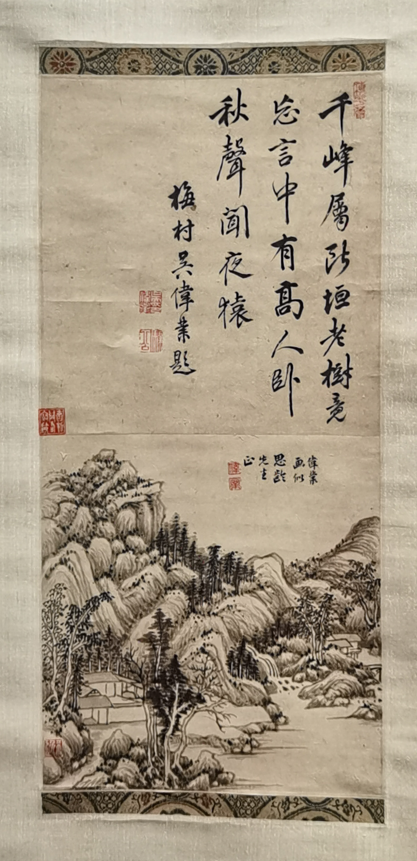 千峰属斷垣老樹竟
忘言中有高人卧
秋聲聞夜猿
梅村吳偉業題
偉業
畫似
思齡
先生
正
偉業